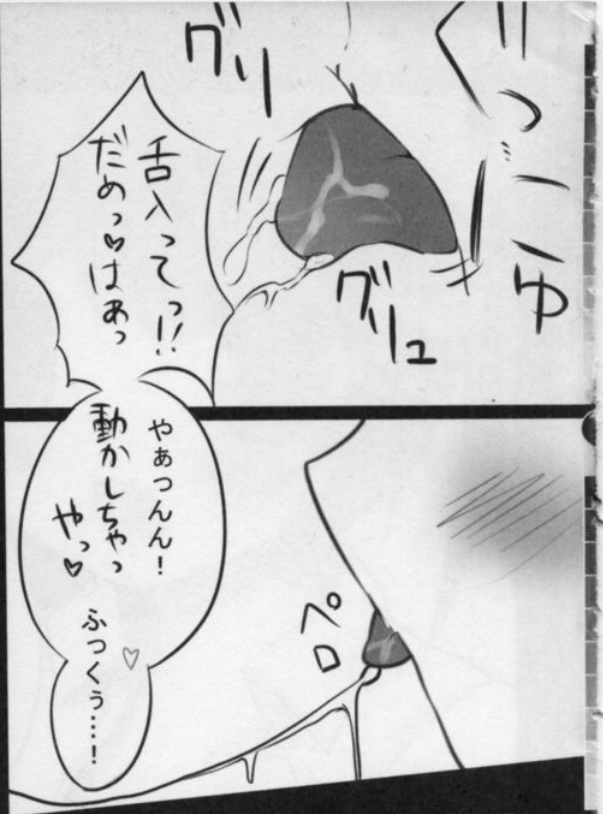 ぐっ
こ
ゅ
グリ
グリュ
舌入ってっ!!
だめっ♡はあっ
やぁつんん!
動かしちゃっ
やっ♡
ふっくぅ…!
♡
ペロ